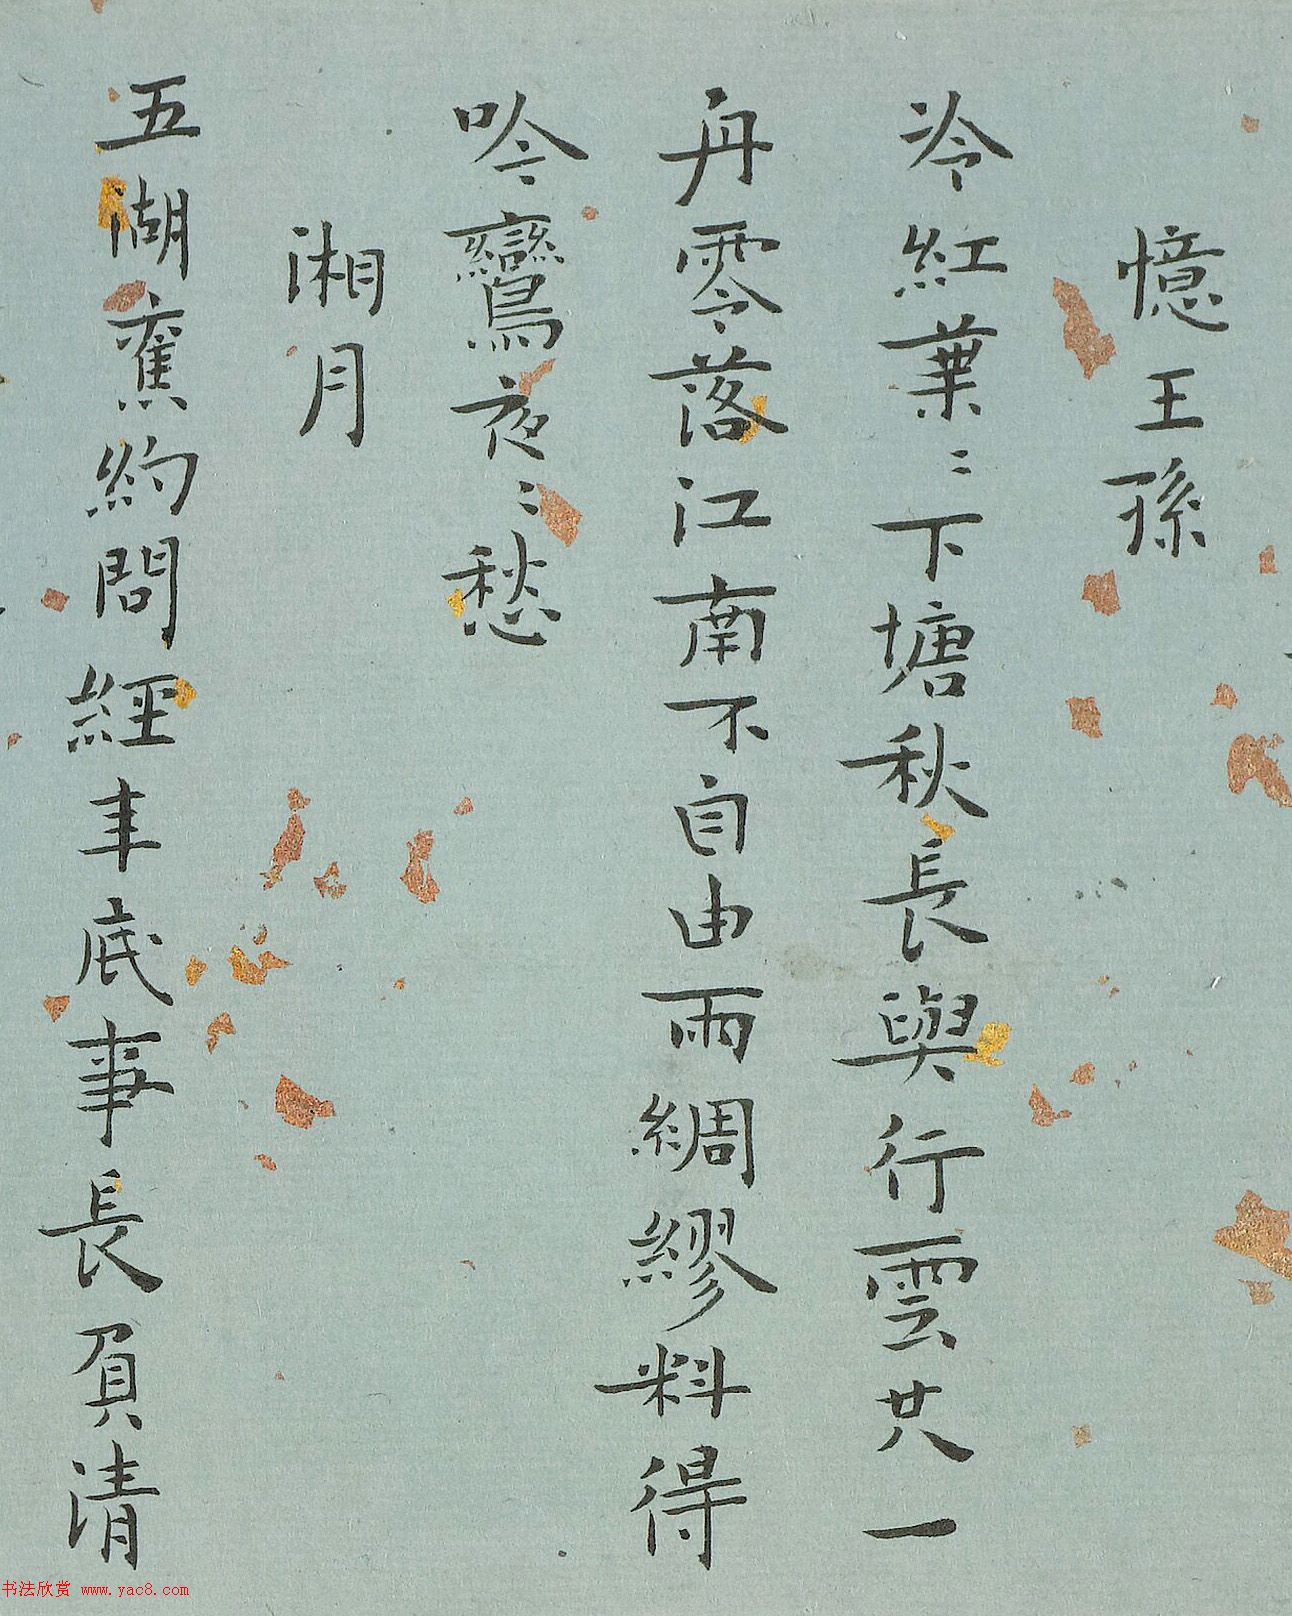 憶王孫
冷紅葉〻下塘秋長與行雲共一
舟零落江南不自由雨綢繆料得
吟鸞夜〻愁
湘月
五湖舊約問經年底事長負清
书法欣赏 www.yac8.com